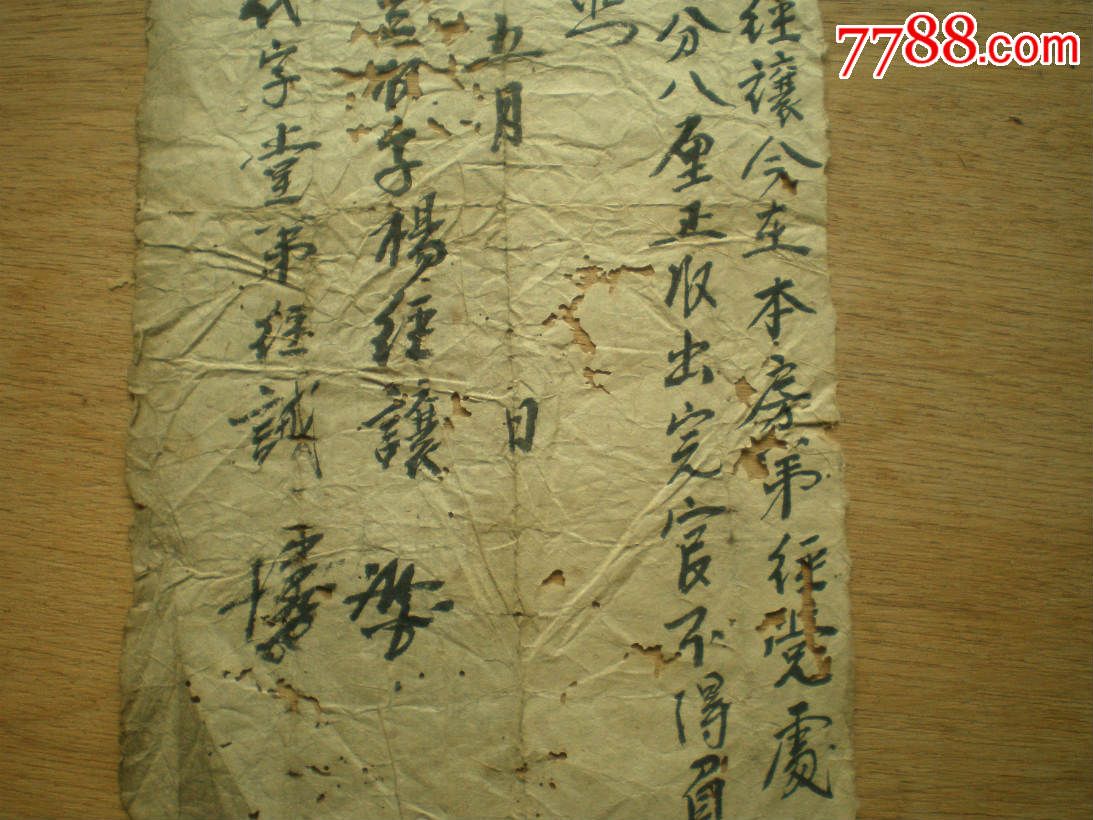 7788.com
經讓今在本房弟經党處
分八厘正收出完官不得
為
五月 日
立百字楊經讓
代字堂弟經誠